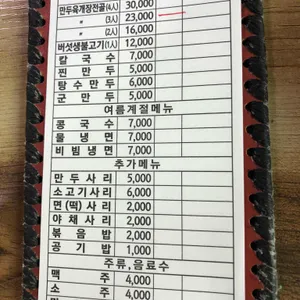 만두육개장전골(4人) 30,000
〃 (3人) 23,000
〃 (2人) 16,000
버섯생불고기(1人) 12,000
칼국수 7,000
찐만두 5,000
탕수만두 6,000
군만두 5,000
여름계절메뉴
콩국수 7,000
물냉면 7,000
비빔냉면 7,000
추가메뉴
만두사리 5,000
소고기사리 6,000
면(떡)사리 2,000
야채사리 2,000
볶음밥 2,000
공기밥 1,000
주류,음료수
맥주 4,000
소주 4,000